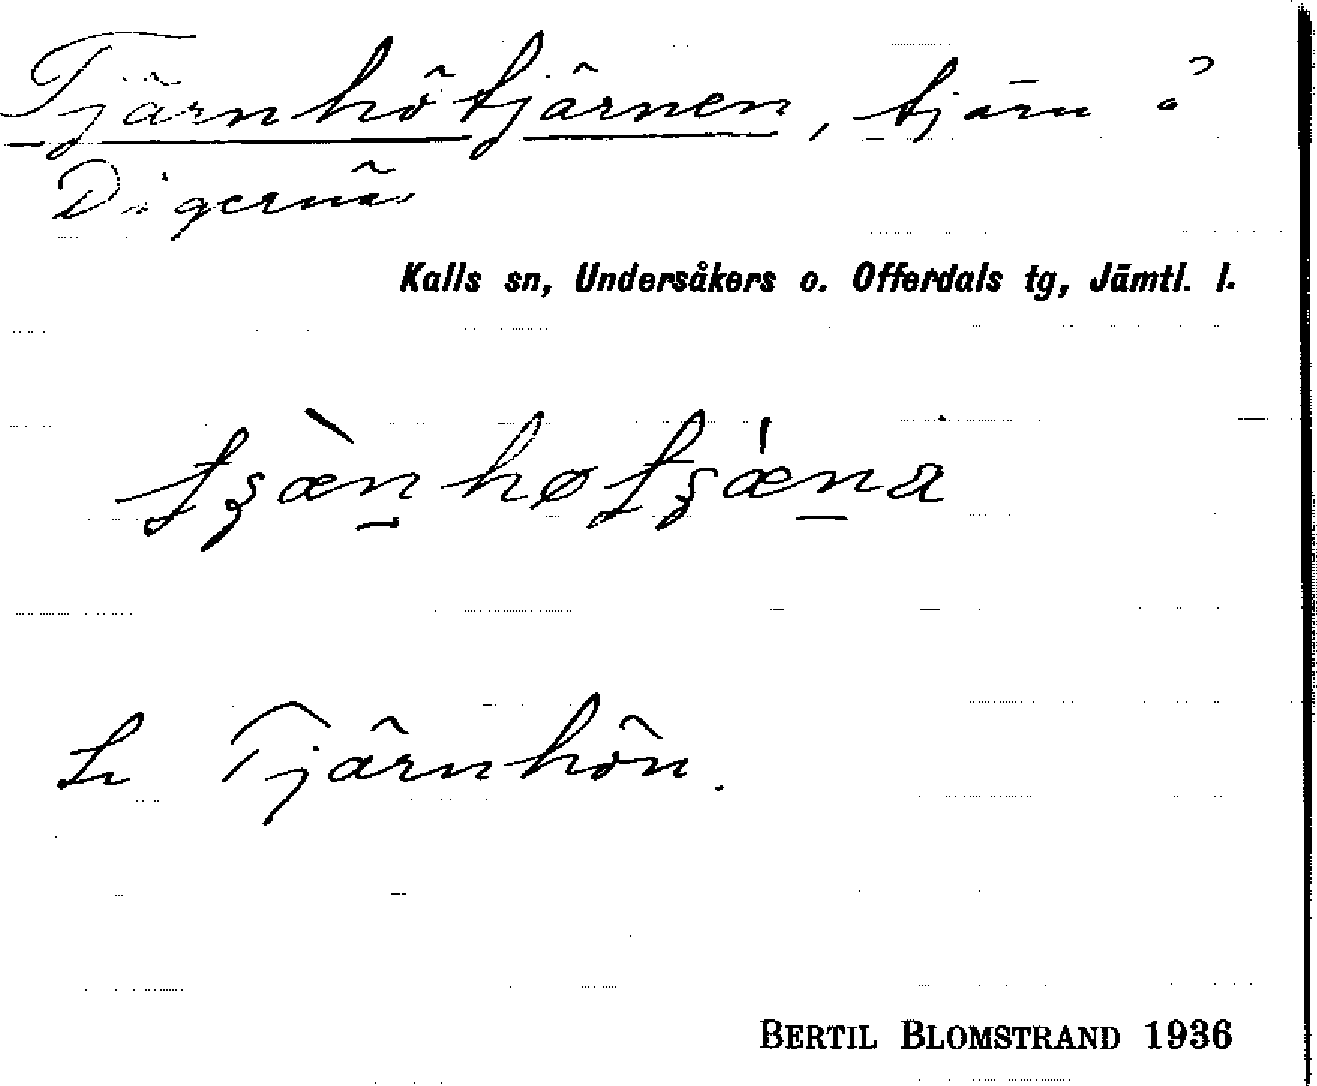 Tjärnhötjärnen, tjärn ?
Digernäs
Kalls sn, Undersåkers o. Offerdals tg, Jämtl. l.
Se Tjärnhön.
BERTIL BLOMSTRAND 1936